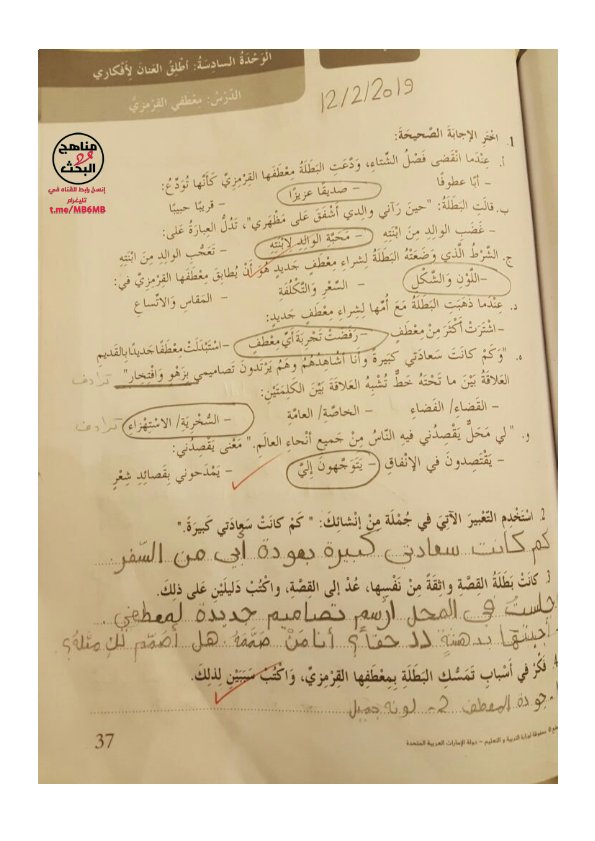 الوَحْدَةُ السادِسَةُ: أُطْلِقُ العَنانَ لِأَفْكاري
الدَّرْسُ: مِعْطَفي القِرْمِزِيُّ
12/2/2019
مناهج
البحث
إنسخ رابط القناه في
تليغرام
t.me/MB6MB
1. اخْتَرِ الإجابَةَ الصَّحيحَةَ:
أ. عِنْدَما انْقَضى فَصْلُ الشِّتاءِ، وَدَّعَتِ البَطَلَةُ مِعْطَفَها القِرْمِزِيَّ كَأَنَّها تُوَدِّعُ:
- أبًا عطوفًا - صديقًا عزيزًا - قريبًا حبيبًا
ب. قالَتِ البَطَلَةُ: "حينَ رَآني والِدي أَشْفَقَ عَلى مَظْهَري"، تَدُلُّ العِبارَةُ عَلى:
- غَضَبِ الوالِدِ مِنَ ابْنَتِهِ - مَحَبَّةِ الوالِدِ لِابْنَتِهِ - تَعَجُّبِ الوالِدِ مِنَ ابْنَتِهِ
ج. الشَّرْطُ الَّذي وَضَعَتْهُ البَطَلَةُ لِشراءِ مِعْطَفٍ جَديدٍ هُوَ أَنْ يُطابِقَ مِعْطَفَها القِرْمِزِيَّ في:
- اللَّوْنِ وَالشَّكْلِ - السِّعْرِ وَالتَّكْلُفَةِ - المَقاسِ وَالاتِّساعِ
د. عِنْدَما ذَهَبَتِ البَطَلَةُ مَعَ أُمِّها لِشِراءِ مِعْطَفٍ جَديدٍ:
- اشْتَرَتْ أَكْثَرَ مِنْ مِعْطَفٍ - رَفَضَتْ تَجْرِبَةَ أَيِّ مِعْطَفٍ - اسْتَبْدَلَتْ مِعْطَفًا جَديدًا بِالقَديمِ
ه. "وَكَمْ كانَت سَعادَتي كَبيرَةً وَأَنا أُشاهِدُهُمْ وَهُمْ يَرْتَدونَ تَصاميمي بِزَهْوٍ وَافْتِخارٍ" ترادف
العَلاقَةُ بَيْنَ ما تَحْتَهُ خَطٌّ تُشْبِهُ العَلاقَةَ بَيْنَ الكَلِمَتَيْنِ:
- القَضاء/ الفَضاء - الخاصَّة/ العامَّة - السُّخْرِيَة/ الاسْتِهْزاء ترادف
و. "لي مَحَلٌّ يَقْصِدُني فيهِ النَّاسُ مِنْ جَميعِ أَنْحاءِ العالَمِ." مَعْنى يَقْصِدُني:
- يَقْتَصِدونَ في الإنْفاقِ - يَتَوَجَّهونَ إِلَيَّ - يَمْدَحوني بِقَصائِدِ شِعْرٍ
2. اسْتَخْدِمِ التَّعْبيرَ الآتِيَ في جُمْلَةٍ مِنْ إِنْشائِكَ: " كَمْ كانَتْ سَعادَتي كَبيرَةً."
كم كانت سعادتي كبيرة بعودة أبي من السفر
3. كانَتْ بَطَلَةُ القِصَّةِ واثِقَةً مِنْ نَفْسِها، عُدْ إلى القِصَّةِ، وَاكْتُبْ دَليلَيْنِ عَلى ذلِكَ.
جلست في المحل أرسم تصاميم جديدة لمعطفي.
أجبتها بدهشة حقا؟ أنا من صممه هل أصمم لك مثله؟
4. فَكِّرْ في أَسْبابِ تَمَسُّكِ البَطَلَةِ بِمِعْطَفِها القِرْمِزِيِّ، وَاكْتُبْ سَبَبَيْنِ لِذلِكَ.
1- جودة المعطف 2- لونه جميل
محفوظة لوزارة التربية و التعليم – دولة الإمارات العربية المتحدة
37